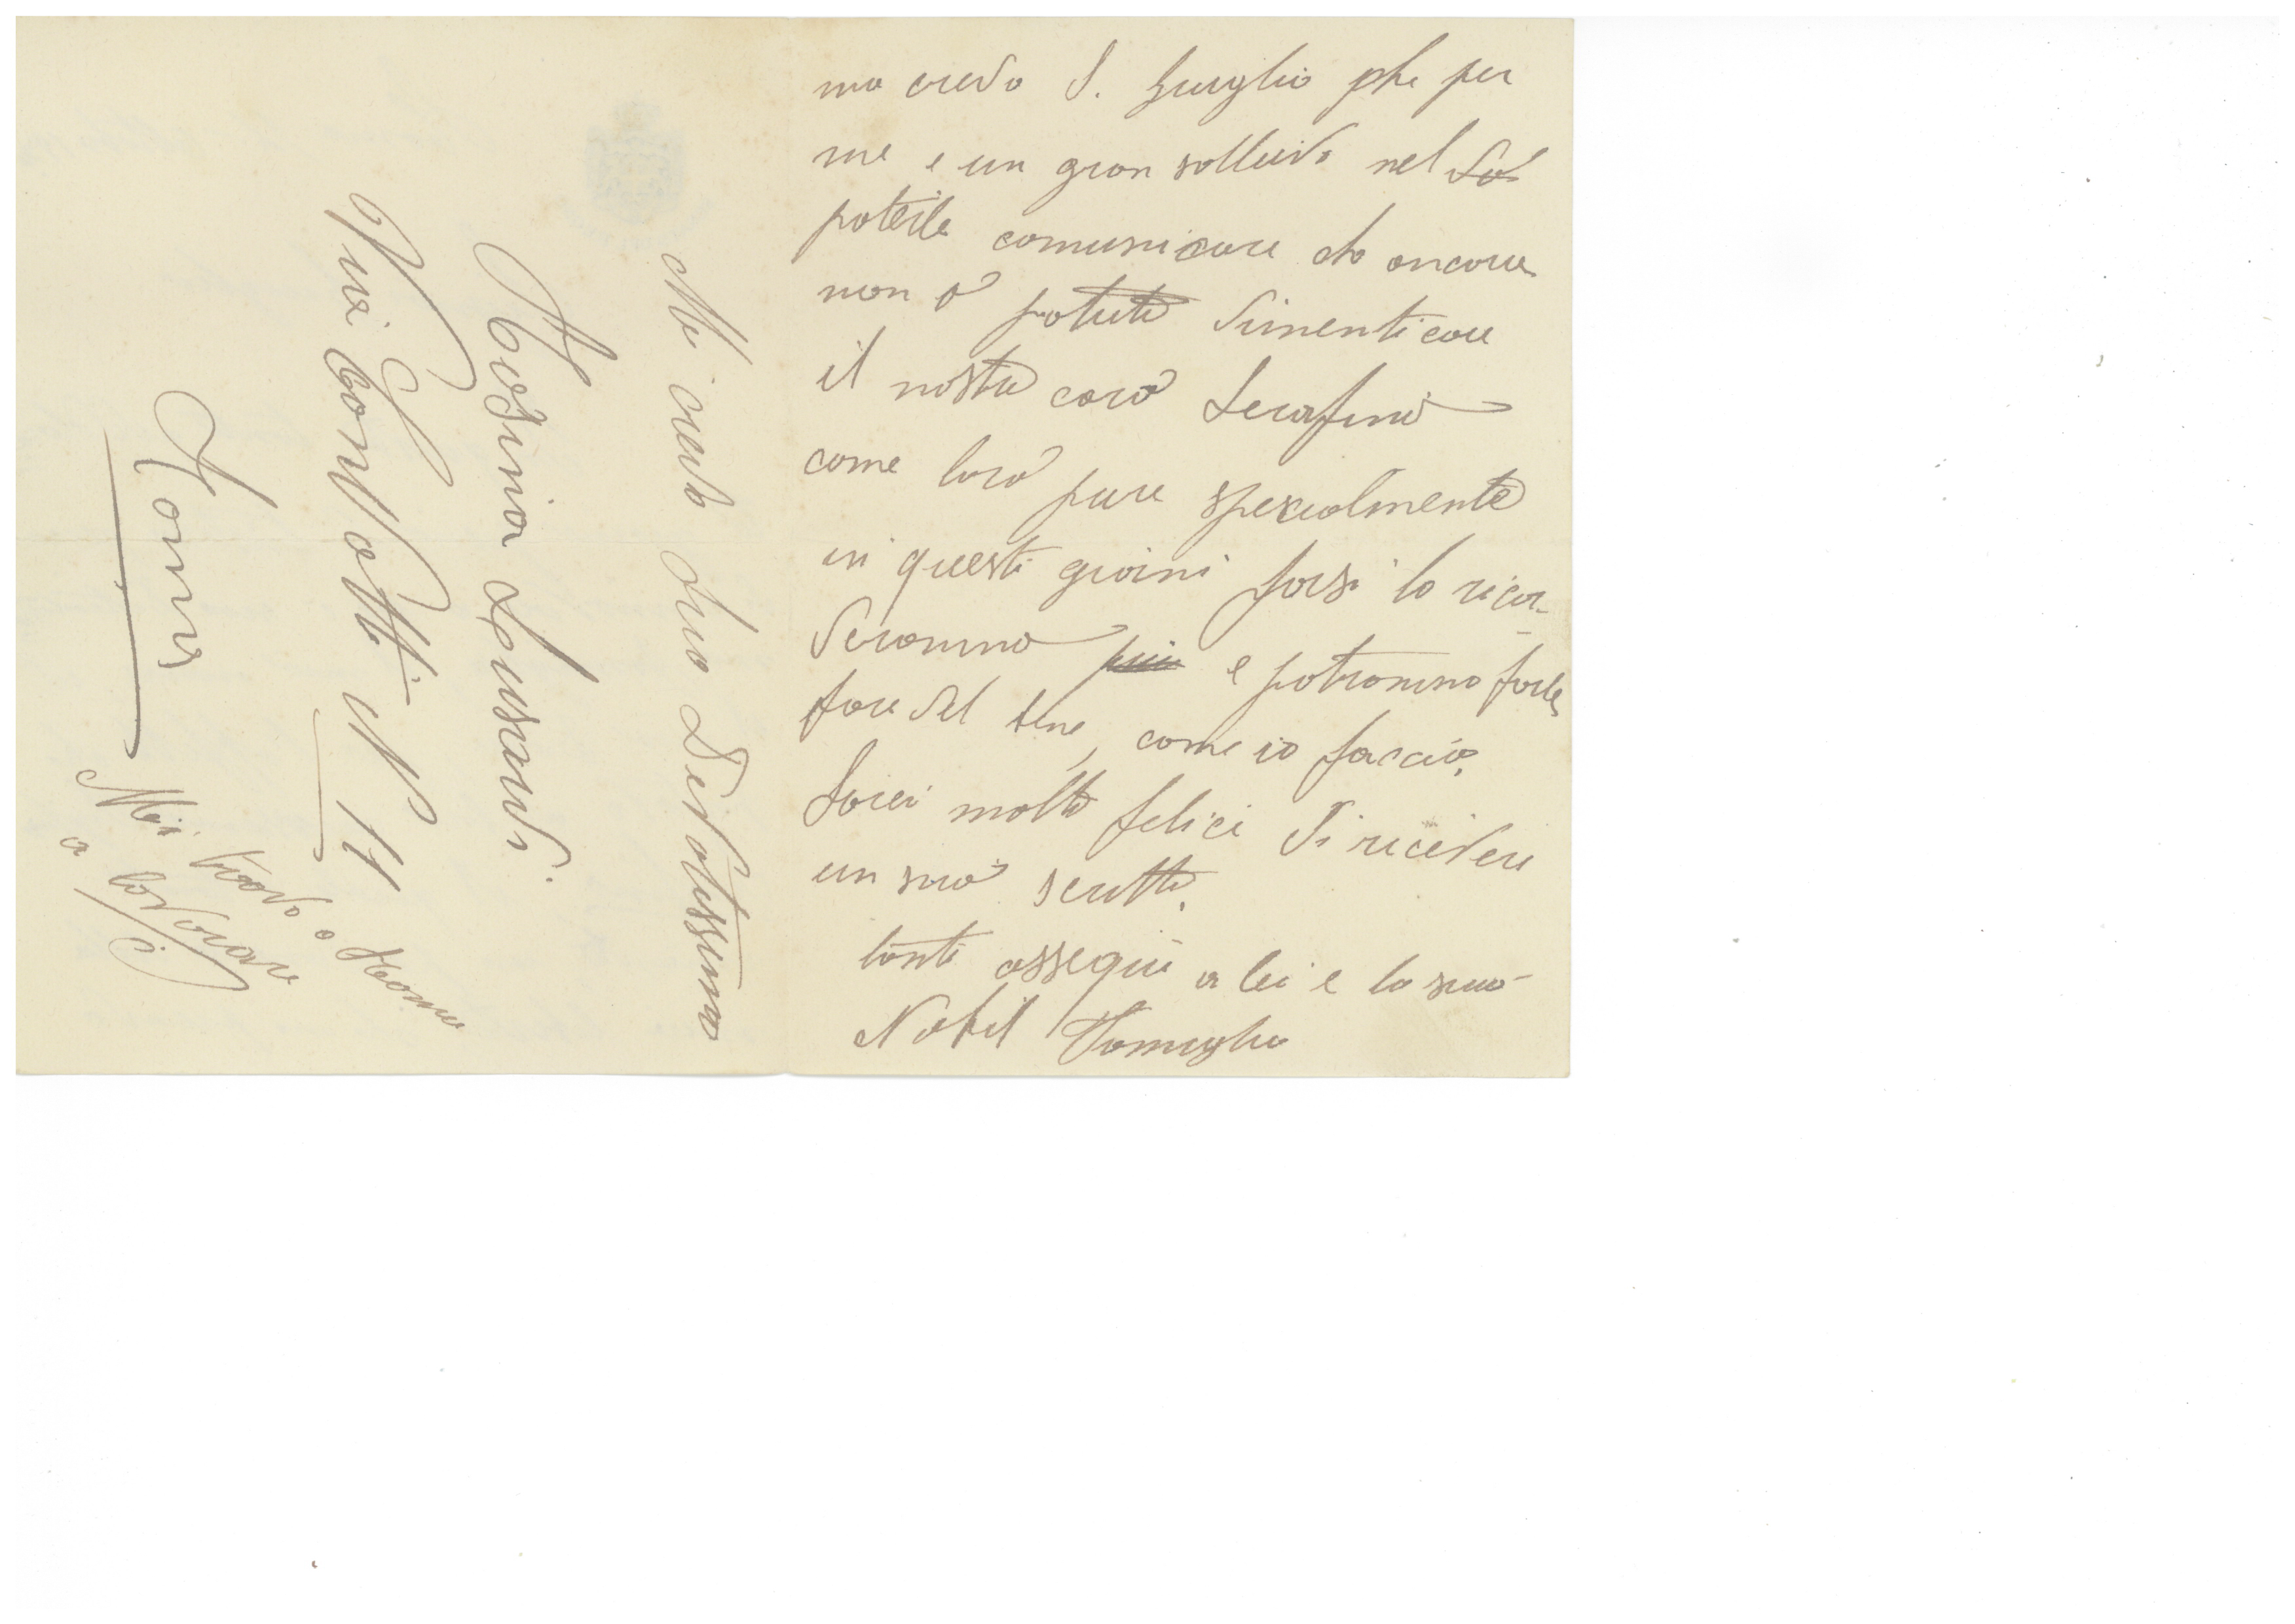 ma credo S. Giuglio che per
me e un gran sollievo nel
poterle comunicare che ancora
non ò potuto dimenticare
il nostro caro Serafino
come loro pure specialmente
in questi giorni forsi lo ricor-
deranno e potranno forle
fare del bene, come io faccio.
Sarei molto felici di ricevere
un suo scritto.
tanti ossequi a lei e la sua
Nobil Famiglia
Mi creda Suo Devotissimo
Rosina
Via Condotti N 11
Roma
Mi trovo a Roma
a lavorare